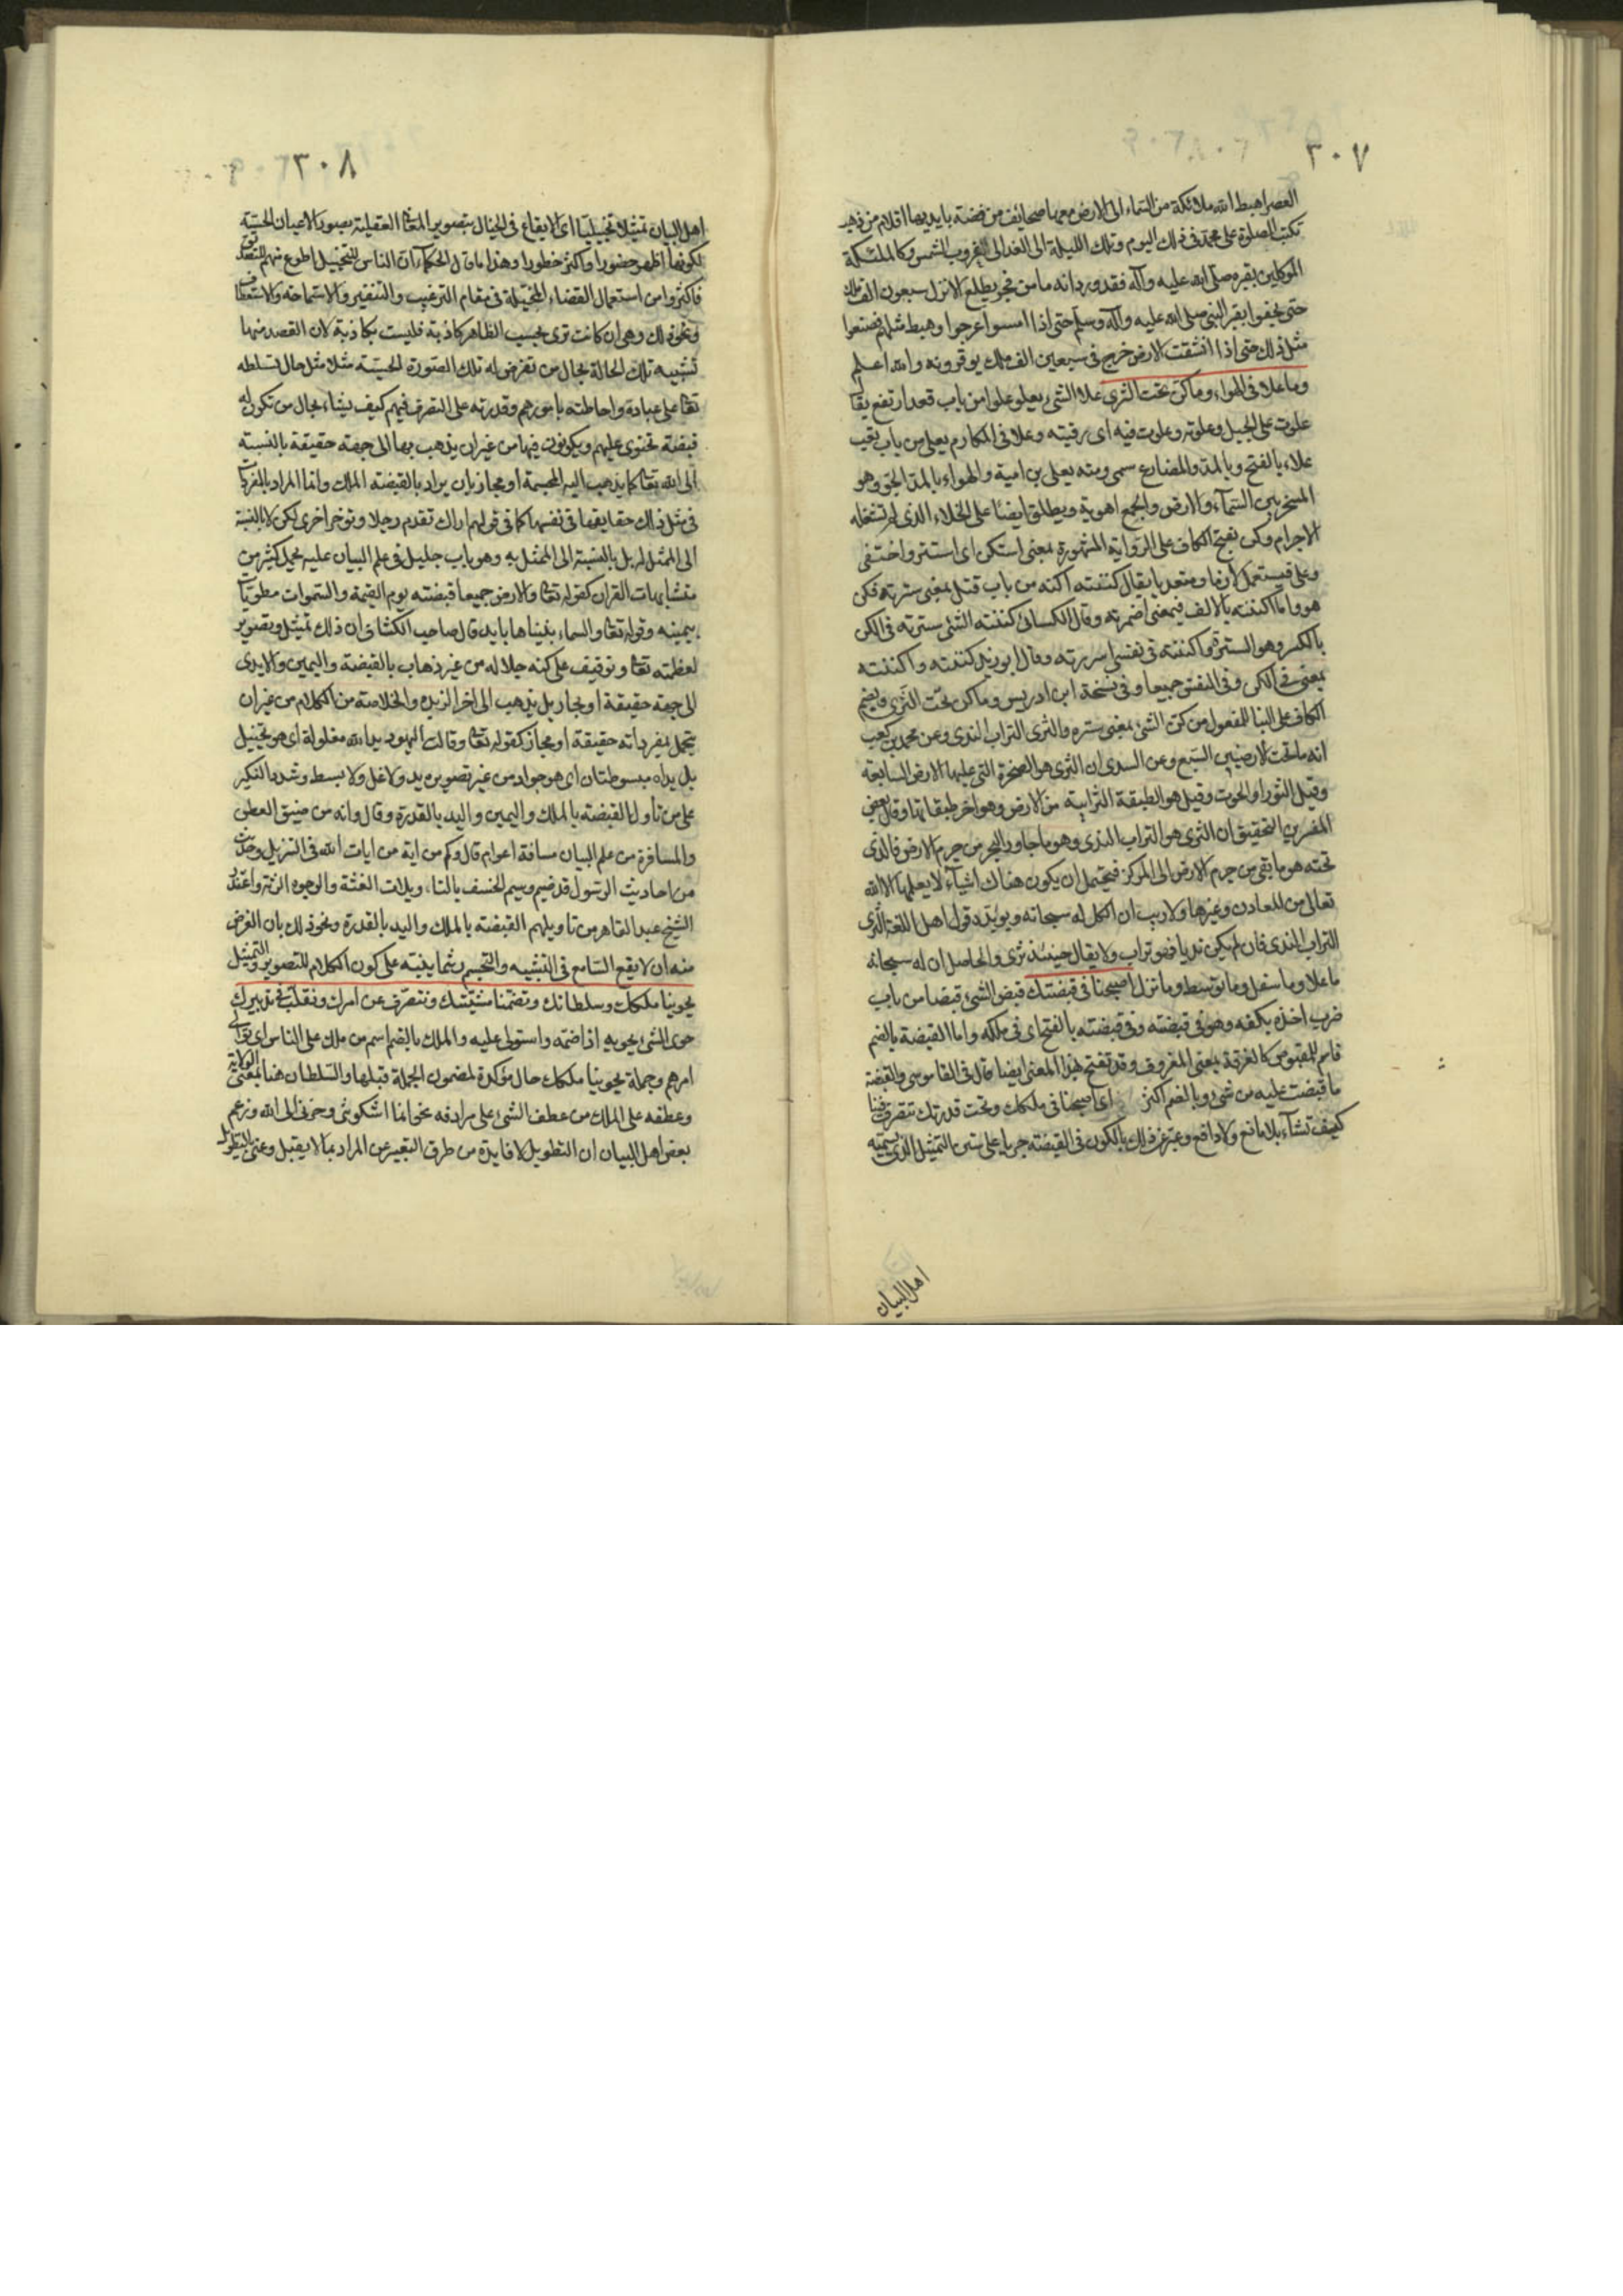 ٣٠٧
العصر اهبط الله ملائكة من السماء الى الارض معها صحائف من فضة بايديها اقلام من ذهب
تكتب الصلوة على محمد فى ذلك اليوم وتلك الليلة الى الغد الى الغروب الشمس وكالملئكة
الموكلين بقبره صلى الله عليه وآله فقد ورد انه ما من فجر يطلع الا نزل سبعون الف ملك
حتى يحفوا بقبر النبى صلى الله عليه وآله وسلم حتى اذا امسوا عرجوا وهبط مثلهم فصنعوا
مثل ذلك حتى اذا انشقت الارض خرج فى سبعين الف ملك يوقرونه والله اعلم
وما علا فى الهواء وما كن تحت الثرى علا الشئ يعلو علوا من باب قعد ارتفع يقال
علوت على الجبل وعلوته وعلوت فيه اى رقيته وعلا فى المكارم يعلى من باب تعب
علاء بالفتح وبالمد والمضارع سمى ومنه يعلى بن امية والهواء بالمد الجو وهو
المسخر بين السماء والارض والجمع اهوية ويطلق ايضا على الخلاء الذى لم تشغله
الاجرام وكن بفتح الكاف على الرواية المشهورة بمعنى استكن اى استتر واختفى
وعلى فيستعمل لازما ومتعديا يقال كننته اكنه من باب قتل بمعنى سترته فكن
هو واما اكننته بالالف فبمعنى اضمرته وقال الكسائى كننته الشئ سترته فى الكن
بالكسر وهو السترة واكننته فى نفسى اسررته وقال ابو زيد كننته واكننته
بمعنى فى الكن وفى النفس جميعا وفى نسخة ابن ادريس وما كن تحت الثرى بضم
الكاف على البنا للمفعول من كن الشئ بمعنى ستره والثرى التراب الندى وعن محمد بن كعب
انه ما تحت الارضين السبع وعن السدى ان الثرى هو الصخرة التى عليها الارض السابعة
وقيل الثور او الحوت وقيل هو الطبقة الترابية من الارض وهو اخر طبقاتها وقال بعض
المفسرين التحقيق ان الثرى هو التراب الندى وهو ما جاور البحر من جرم الارض فالذى
تحته هو ما بقى من جرم الارض الى المركز فيحتمل ان يكون هناك اشياء لا يعلمها الا الله
تعالى من المعادن وغيرها ولا ريب ان الكل له سبحانه ويؤيده قول اهل اللغة الثرى
التراب الندى فان لم يكن نديا فهو تراب ولا يقال حينئذ ثرى والحاصل ان له سبحانه
ما علا وما سفل وما توسط وما نزل اصبحنا فى قبضتك قبض الشئ قبضا من باب
ضرب اخذه بكفه وهو فى قبضته وفى قبضته بالفتح اى فى ملكه واما القبضة بالضم
فاسم للمقبوض كالغرفة بمعنى المغروف وقد تفتح بهذا المعنى ايضا قال فى القاموس والقبضة
ما قبضت عليه من شئ وبالضم اكثر اى اصبحنا فى ملكك وتحت قدرتك تتصرف فينا
كيف تشاء بلا مانع ولا دافع وعبر عن ذلك بالكون فى القبضة جريا على سنن التمثيل الذى يسميه
اهل البيان
٣٠٨
اهل البيان تمثيلا تخييليا اى الايقاع فى الخيال بتصوير المعانى العقلية بصور الاعيان الحسية
لكونها اظهر حضورا واكثر خطورا وهذا ما قال الحكماء ان الناس للتخييل اطوع منهم للتصديق
فاكثروا من استعمال القضاء المخيلة فى مقام الترغيب والتنفير والاستماحة والاستعطاف
ونحو ذلك وهى ان كانت ترى بحسب الظاهر كاذبة فليست بكاذبة لان القصد منها
تشبيه تلك الحالة بحال من تفرض له تلك الصورة الحسية مثلا مثل حال تسلطه
تعالى على عباده واحاطته بامورهم وقدرته على التصرف فيهم كيف يشاء بحال من تكون له
قبضة تحتوى عليهم ويكونون فيها من غير ان يذهب بها الى جهة حقيقة بالنسبة
الى الله تعالى كما يذهب اليه المجسمة او مجاز بان يراد بالقبضة الملك وانما المراد بالمفردات
فى مثل ذلك حقايقها فى نفسها كما فى قولهم اراك تقدم رجلا وتؤخر اخرى لكن لا بالنسبة
الى الممثل له بل بالنسبة الى الممثل به وهو باب جليل فى علم البيان عليه يحمل كثير من
متشابهات القران كقوله تعالى والارض جميعا قبضته يوم القيمة والسموات مطويات
بيمينه وقوله تعالى والسماء بنيناها بايد قال صاحب الكشاف ان ذلك تمثيل وتصوير
لعظمته تعالى وتوقيف على كنه جلاله من غير ذهاب بالقبضة واليمين والايدى
الى جهة حقيقة او مجاز بل يذهب الى اخر الزبدة والخلاصة من الكلام من غير ان
يتحمل لمفرداته حقيقة او مجاز كقوله تعالى وقالت اليهود يد الله مغلولة اى هو بخيل
بل يداه مبسوطتان اى هو جواد من غير تصوير يد ولا غل ولا بسط وشدد النكير
على من تأول القبضة بالملك واليمين واليد بالقدرة وقال وانه من ضيق العطن
والمسافرة من علم البيان مسافة اعوام قال وكم من اية من ايات الله فى التنزيل وحديث
من احاديث الرسول قد ضيم وسيم الخسف بالتاويلات الغثة والوجوه الرثة واعتذر
الشيخ عبد القاهر من تاويلهم القبضة بالملك واليد بالقدرة ونحو ذلك بان الغرض
منه ان لا يقع السامع فى التشبيه والتجسيم ريثما ينبه على كون الكلام للتصوير والتمثيل
يحوينا ملكك وسلطانك وتضمنا مشيتك ونتصرف عن امرك ونتقلب فى تدبيرك
حوى الشئ يحويه اذا ضمه واستولى عليه والملك بالضم اسم من ملك على الناس اى تولى
امرهم وجملة يحوينا ملكك حال مؤكدة لمضمون الجملة قبلها والسلطان هنا بمعنى الولاية
وعطفه على الملك من عطف الشئ على مرادفه نحو انما اشكو بثى وحزنى الى الله وزعم
بعض اهل البيان ان التطويل لا فايدة من طرق التعبير عن المراد بما لا يقبل وعنى بالتطويل